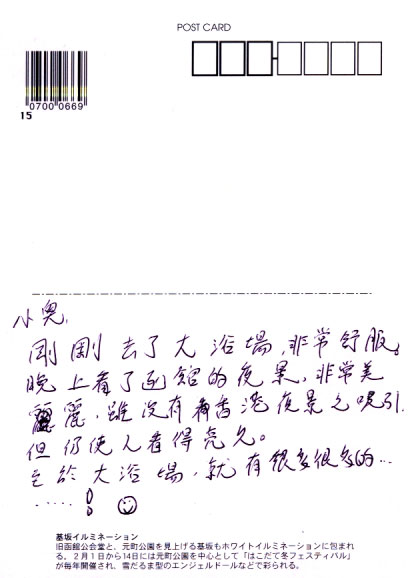 POST CARD
0700 0669
15
小兒,
剛剛去了大浴場,非常舒服。
晚上看了函館的夜景,非常美
麗,雖沒有香港夜景之吸引,
但仍使人看得亮久。
至於大浴場,就有很多很多的…
……!
基坂イルミネーション
旧函館公会堂と、元町公園を見上げる基坂もホワイトイルミネーションに包まれ
る。2月1日から14日には元町公園を中心として「はこだて冬フェスティバル」
が毎年開催され、雪だるま型のエンジェルドールなどで彩られる。